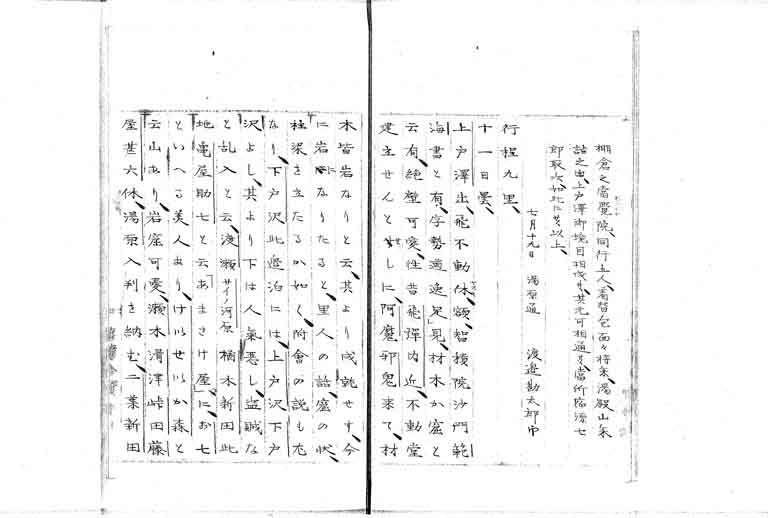 棚倉之當覺院、同行五人、着替包面々持参、湯殿山参
詣之由、上戸澤御境目相改、其元可相通、當所陥源七
郎取次、如此に候、以上、
七月十九日　湯原通　渡邊勘太郎印
行程九里、
十一日曇、
上戸澤出、飛不動体、額、智積院沙門範
海書と有、字勢遒逸足見、材木か窟と
云有、絶壁可愛、往昔飛彈内近、不動堂
建立せんとせしに、阿魔邪鬼来て、材
木皆岩なりと云、其より成就せす、今
に岩になりたると、里人の話、窟の状、
柱梁を立たるか如く、附會の説も尤
なり、下戸沢此邉泊には、上戸沢下戸
沢よし、其より下は人氣悪し、盗賊な
と乱入と云、渡瀬サイノ河原 橋木新田此
地亀屋助七と云、「あまさけ屋」にお七
といへる美人あり、けいせいか森と
云山あり、岩窟可愛、瀬木滑津峠田藤
屋甚六休、湯原入判を納む、二葉新田